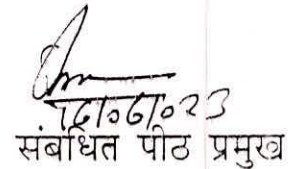 16/06/023
संबंधित पीठ प्रमुख